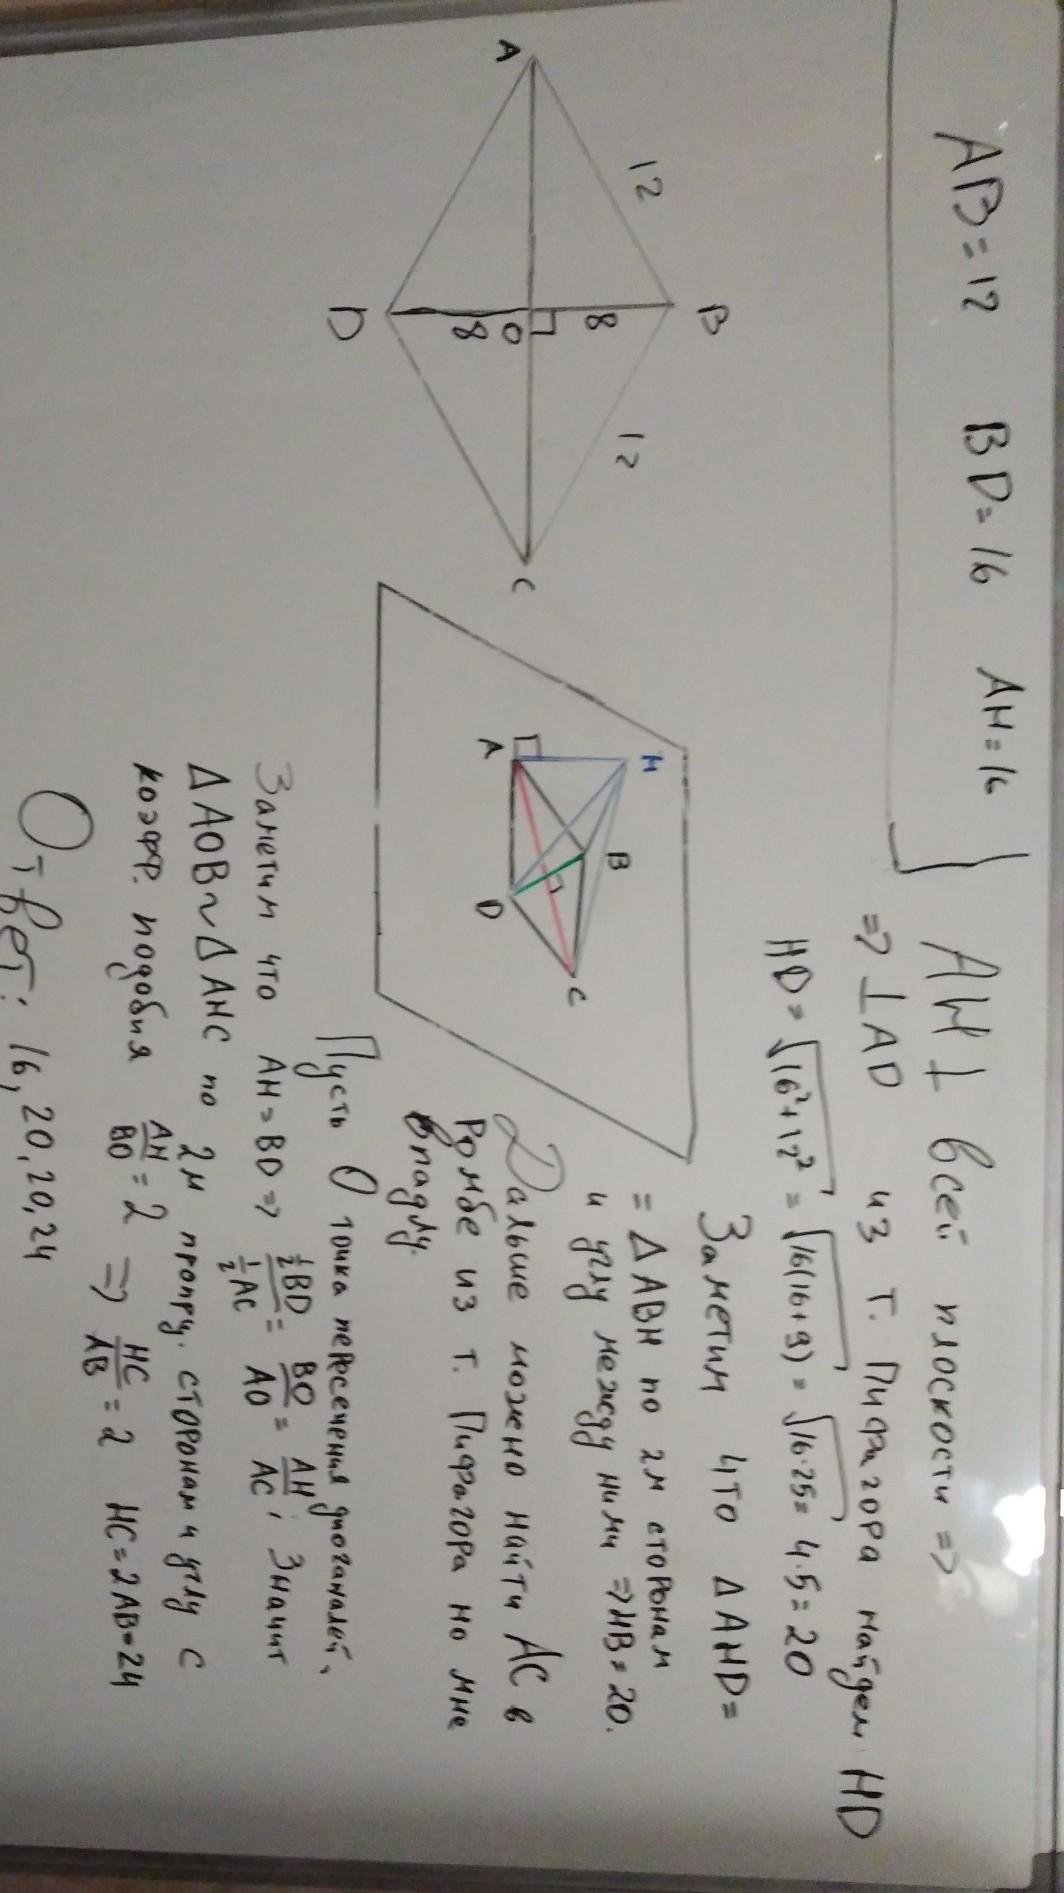 AB = 12 BD = 16 AH = 16
AH ⊥ всей плоскости =>
=> ⊥ AD из т. Пифагора найдем HD
HD = √16²+12² = √16(16+9) = √16·25 = 4·5 = 20
A
12
B
12
8
O
8
D
C
H
B
A
D
C
Заметим что Δ AHD =
= Δ ABH по 2м сторонам
и углу между ними => HB = 20.
Дальше можно найти AC в
Ромбе из т. Пифагора но мне
впадлу.
Пусть O точка пересечения диоганалей,
Заметим что AH = BD => ½BD / ½AC = BO / AO = AH / AC ; Значит
Δ AOB ~ Δ AHC по 2м пропрц. сторонам и углу с
коэфф. подобия AH / BO = 2 => HC / AB = 2 HC = 2AB = 24
Ответ: 16, 20, 20, 24